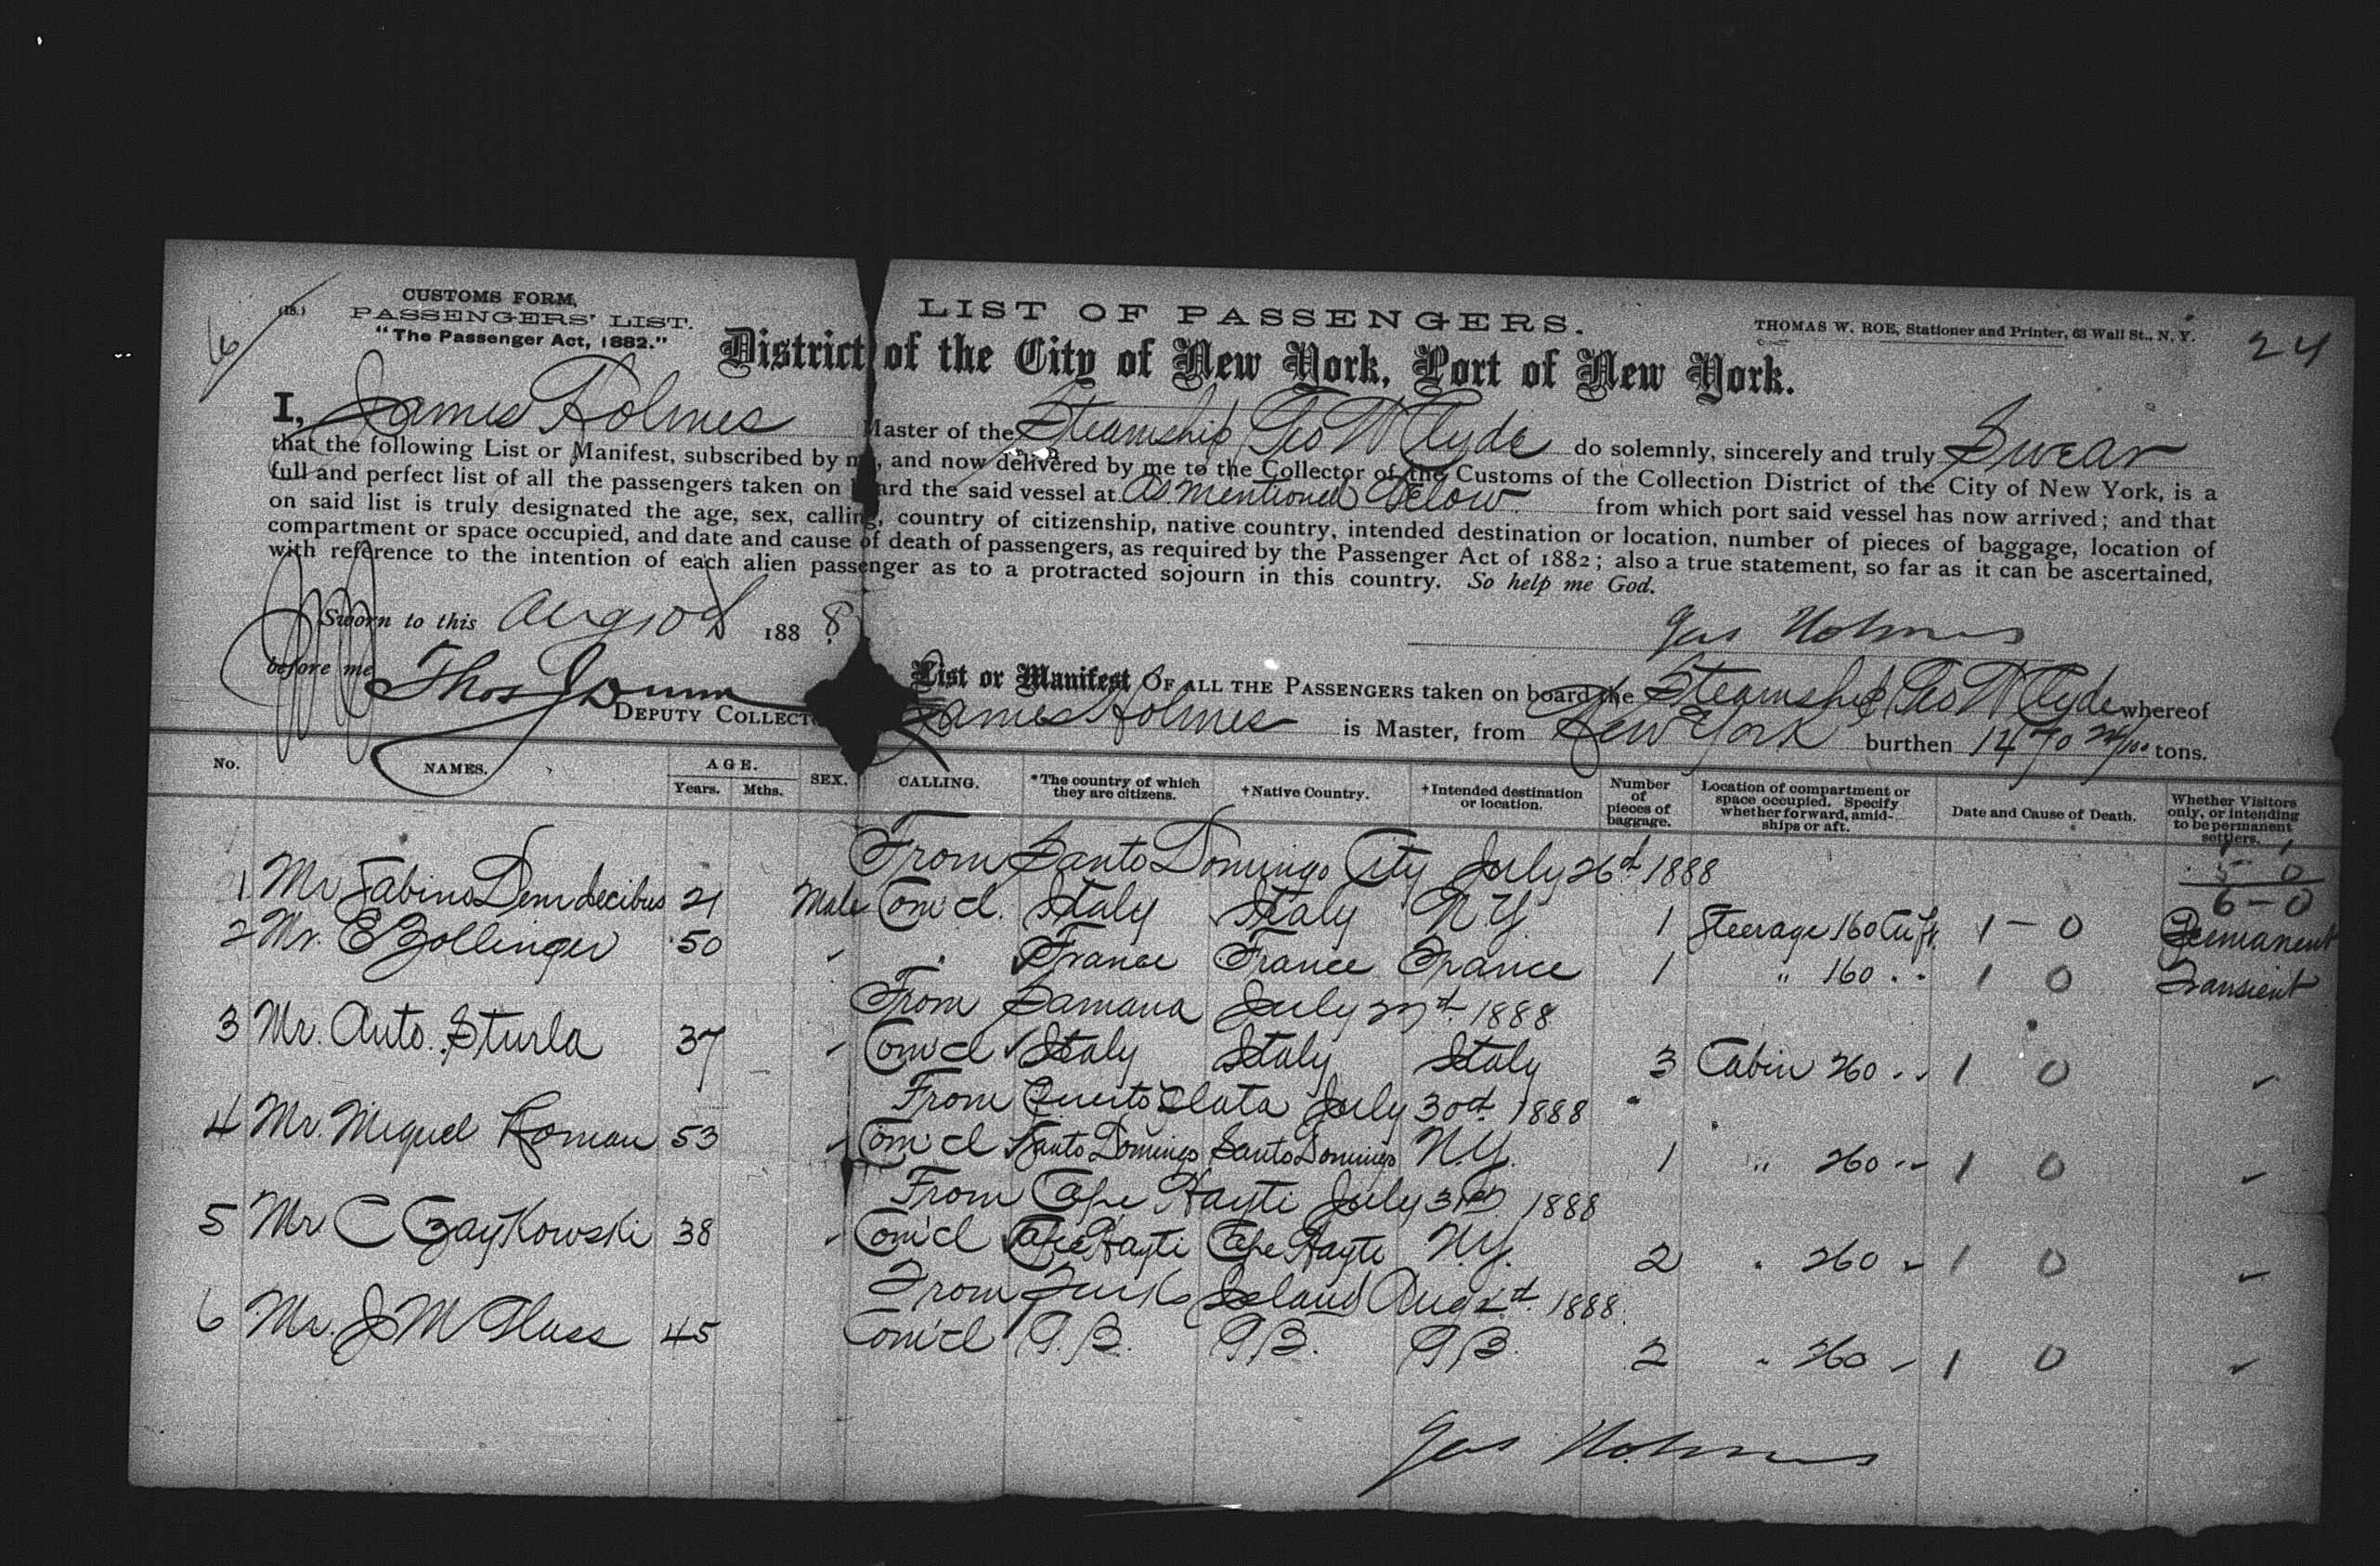 CUSTOMS FORM,
(18.) PASSENGERS' LIST.
"The Passenger Act, 1882."
LIST OF PASSENGERS.
THOMAS W. ROE, Stationer and Printer, 63 Wall St., N. Y.
24
6
District of the City of New York, Port of New York.
I, James Holmes Master of the Steamship Geo W Clyde do solemnly, sincerely and truly Swear
that the following List or Manifest, subscribed by me, and now delivered by me to the Collector of the Customs of the Collection District of the City of New York, is a
full and perfect list of all the passengers taken on board the said vessel at As mentioned below from which port said vessel has now arrived; and that
on said list is truly designated the age, sex, calling, country of citizenship, native country, intended destination or location, number of pieces of baggage, location of
compartment or space occupied, and date and cause of death of passengers, as required by the Passenger Act of 1882; also a true statement, so far as it can be ascertained,
with reference to the intention of each alien passenger as to a protracted sojourn in this country. So help me God.
Sworn to this Aug 10 d 1888
Jas Holmes
before me Thos J Dunn
DEPUTY COLLECTO
List or Manifest OF ALL THE PASSENGERS taken on board the Steamship Geo W Clyde whereof
James Holmes is Master, from New York burthen 1470 /100 tons.
No. NAMES. AGE. Years. Mths. SEX. CALLING. *The country of which they are citizens. †Native Country. †Intended destination or location. Number of pieces of baggage. Location of compartment or space occupied. Specify whether forward, amidships or aft. Date and Cause of Death. Whether Visitors only, or intending to be permanent settlers.
From Santo Domingo City July 26d 1888
5 0
6 - 0
1 Mr Sabino 21 Male Com'cl. Italy Italy N.Y. 1 Steerage 160 Cu ft. 1 - 0 Permanent
2 Mr. E Zollinger 50 " France France France 1 " 160 " " 1 0 Transient
From Samana July 27d 1888
3 Mr. Anto. Sturla 37 Com'cl Italy Italy Italy 3 Cabin 260 " " 1 0
From Puerto Plata July 30d 1888
4 Mr. Miguel Roman 53 Com'cl Santo Domingo Santo Domingo N.Y. 1 " 260 " " 1 0
From Cape Hayti July 31d 1888
5 Mr C Czaykowski 38 Com'cl Cape Hayti Cape Hayti N.Y. 2 " 260 " 1 0
From Turks Island Aug 1888
6 Mr. J M Glass 45 Com'cl G.B. G.B. G.B. 2 " 260 " 1 0
Jas Holmes